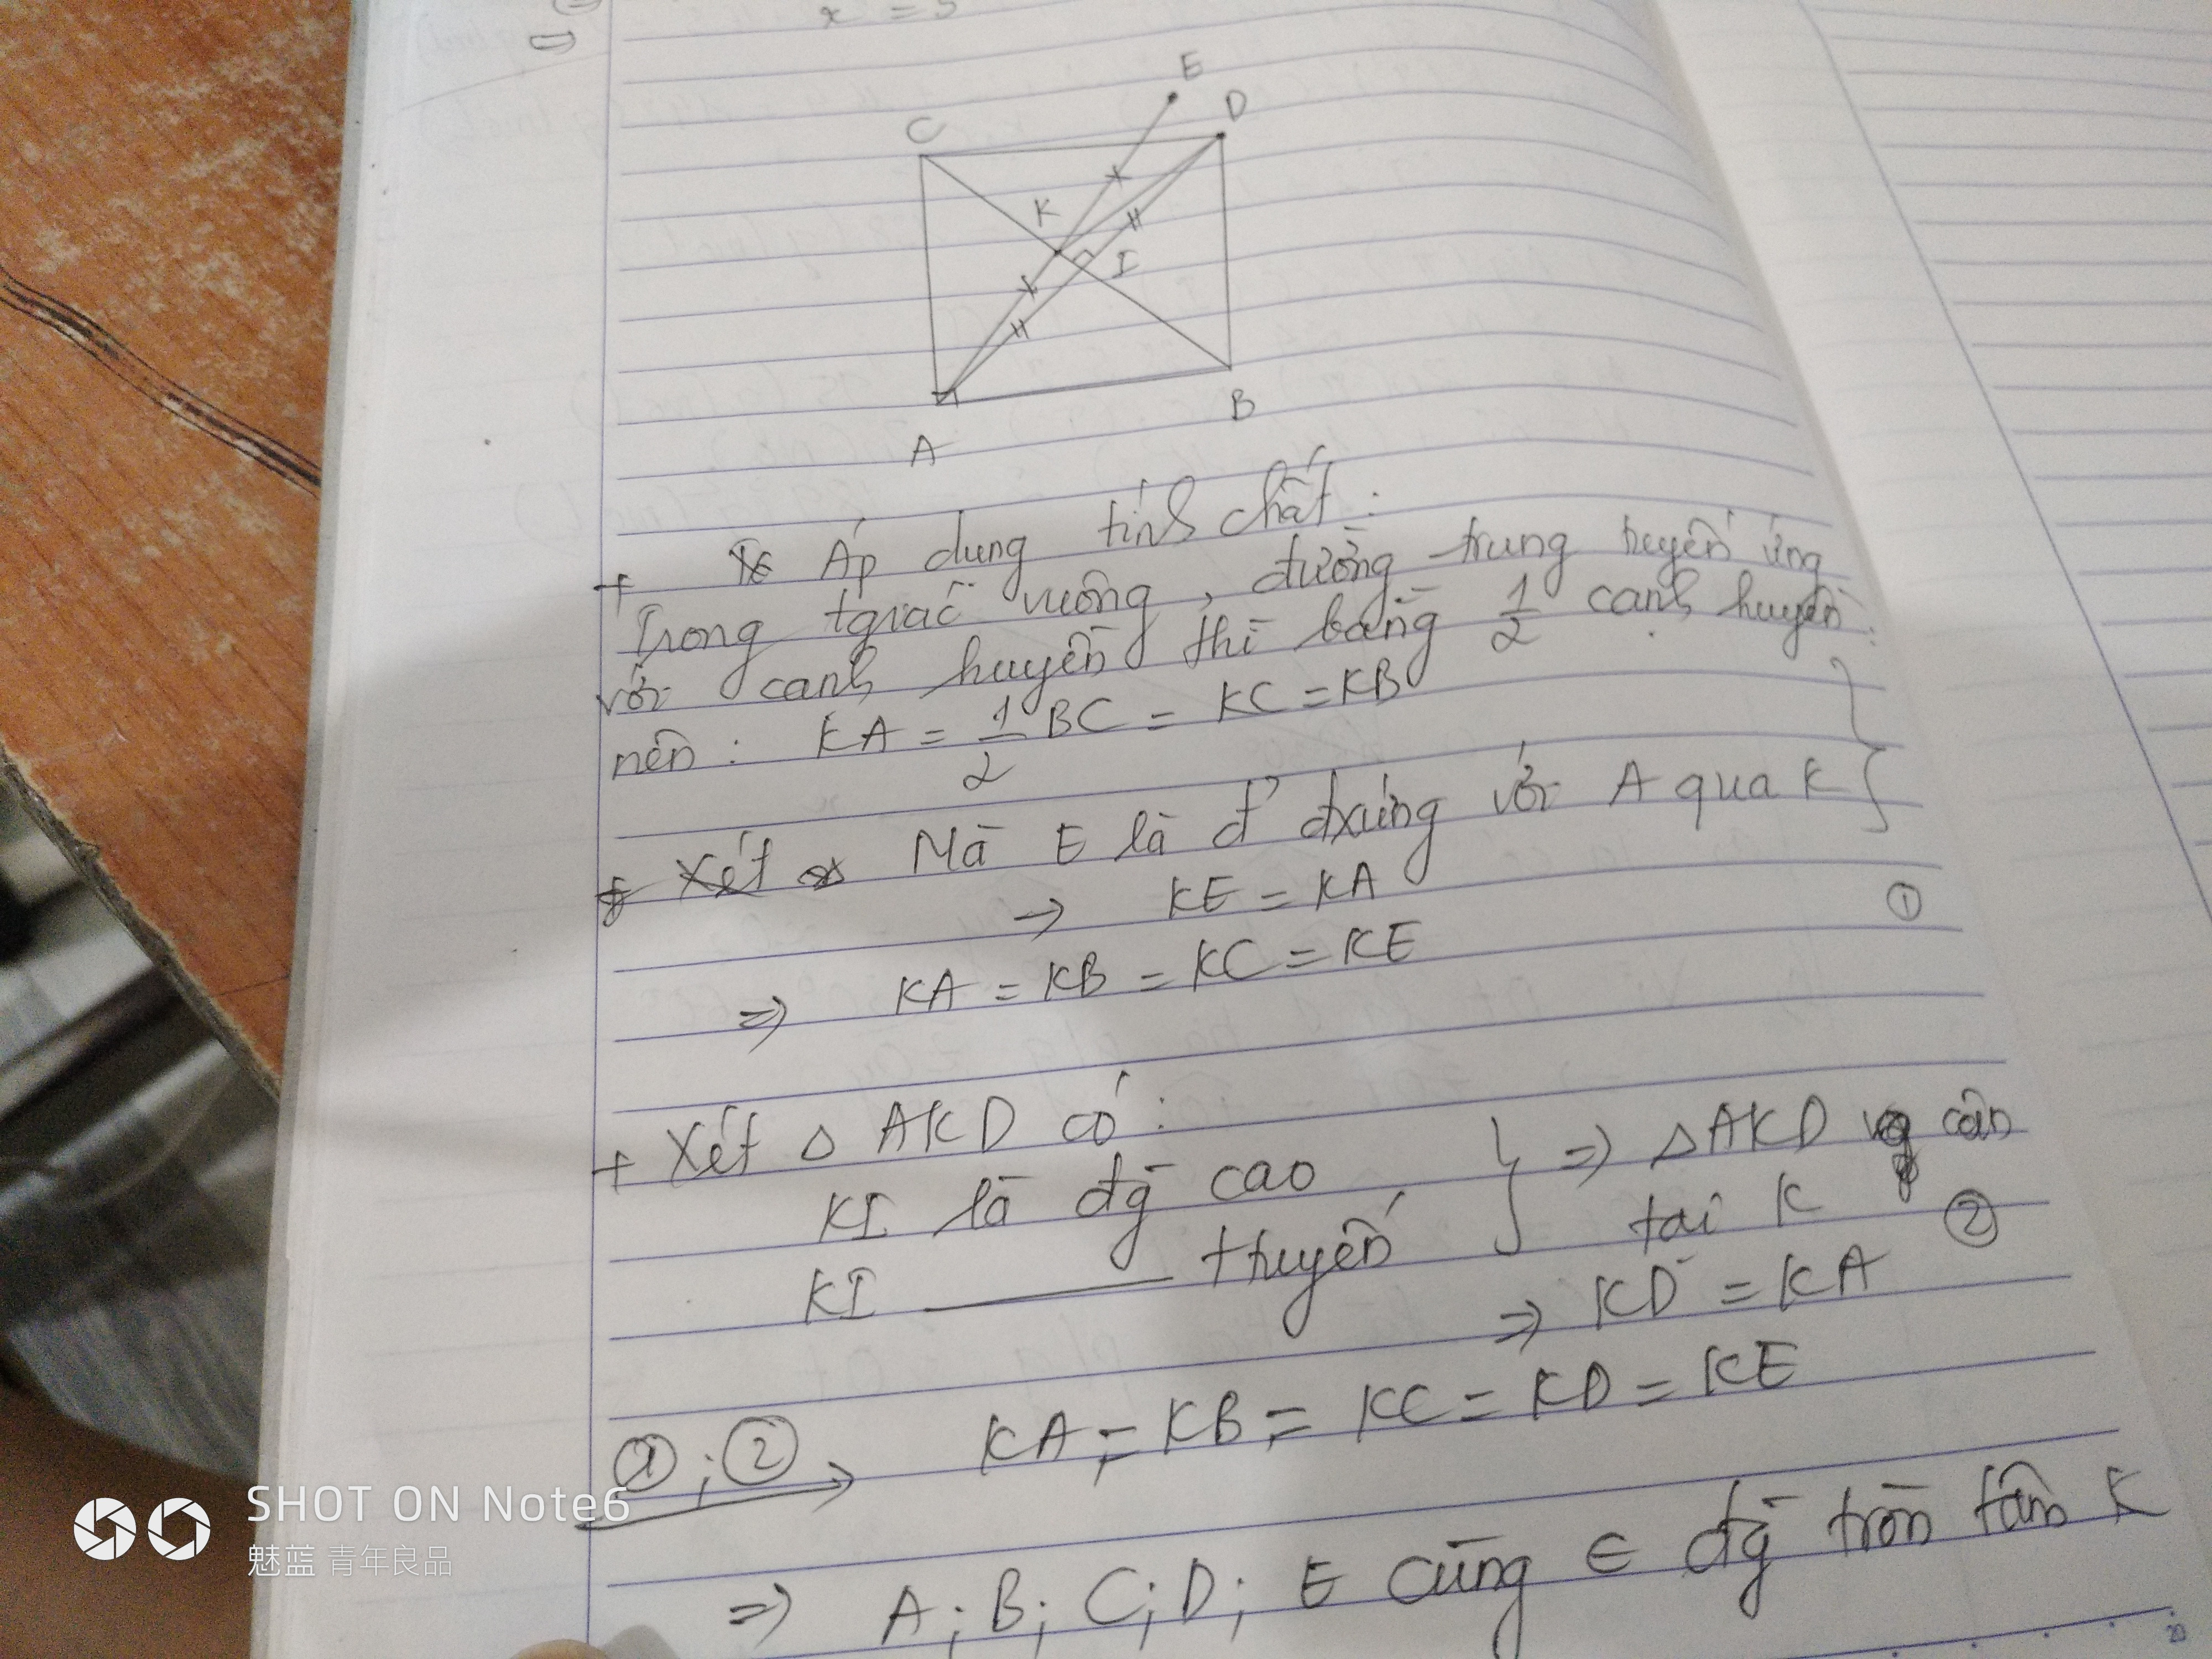 x = 5
E
D
C
K
I
B
A
+ Áp dụng tính chất :
Trong tgiác vuông, đường trung tuyến ứng
với cạnh huyền thì bằng 1/2 cạnh huyền.
nên : KA = 1/2 BC = KC = KB
Xét Mà E là đ' đxứng với A qua K
→ KE = KA
①
⇒ KA = KB = KC = KE
+ Xét Δ AKD có :
KI là đg cao
⇒ Δ AKD cân
KI ——— ttuyến
tại K ②
⇒ KD = KA
①; ② → KA = KB = KC = KD = KE
⇒ A; B; C; D; E cùng ∈ đg tròn tâm K
SHOT ON Note6
魅蓝 青年良品